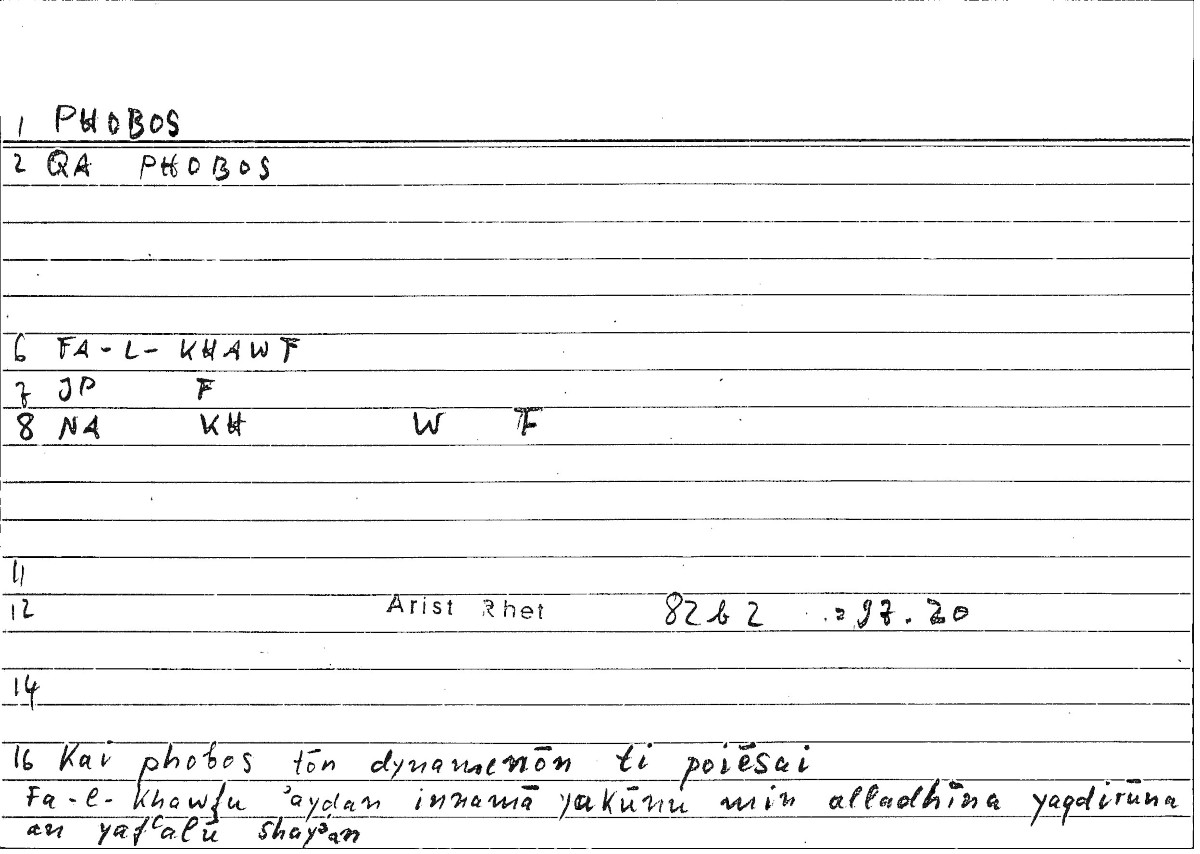 1 PHOBOS
2 QA PHOBOS
6 FA-L-KHAWF
7 JP F
8 NA KH W F
11
12 Arist Rhet 82b2 = 97.20
14
16 Kai phobos tōn dynamenōn ti poiēsai
Fa-l-khawfu ʾaydan innamā yakūnu min alladhīna yaqdirūna
an yafʿalū shayʾan